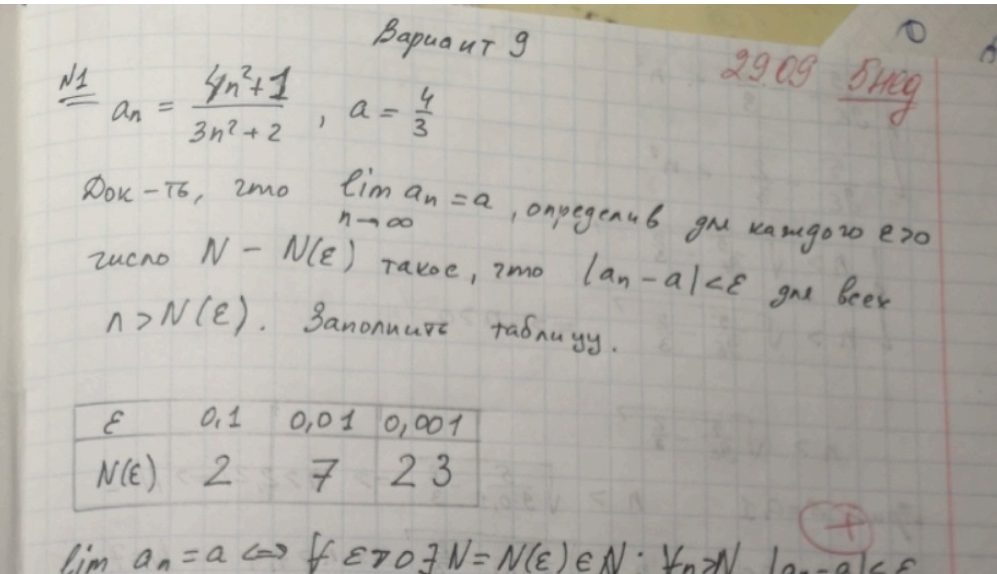 Вариант 9
29.09 5 нед
№1 aₙ = (4n²+1)/(3n²+2), a = 4/3
Док-ть, что lim aₙ = a, определив для каждого ε>0
n→∞
число N – N(ε) такое, что |aₙ – a|<ε для всех
n>N(ε). Заполнить таблицу.
ε 0,1 0,01 0,001
N(ε) 2 7 23
+
lim aₙ = a ⇔ ∀ ε>0 ∃ N = N(ε) ∈ N : ∀n>N |aₙ–a|<ε